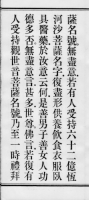 薩名號無盡意若有人受持六十二億恆
河沙菩薩名字復盡形供養飲食衣服臥
具醫藥於汝意云何是善男子善女人功
德多否無盡意言甚多世尊佛言若復有
人受持觀世音菩薩名號乃至一時禮拜